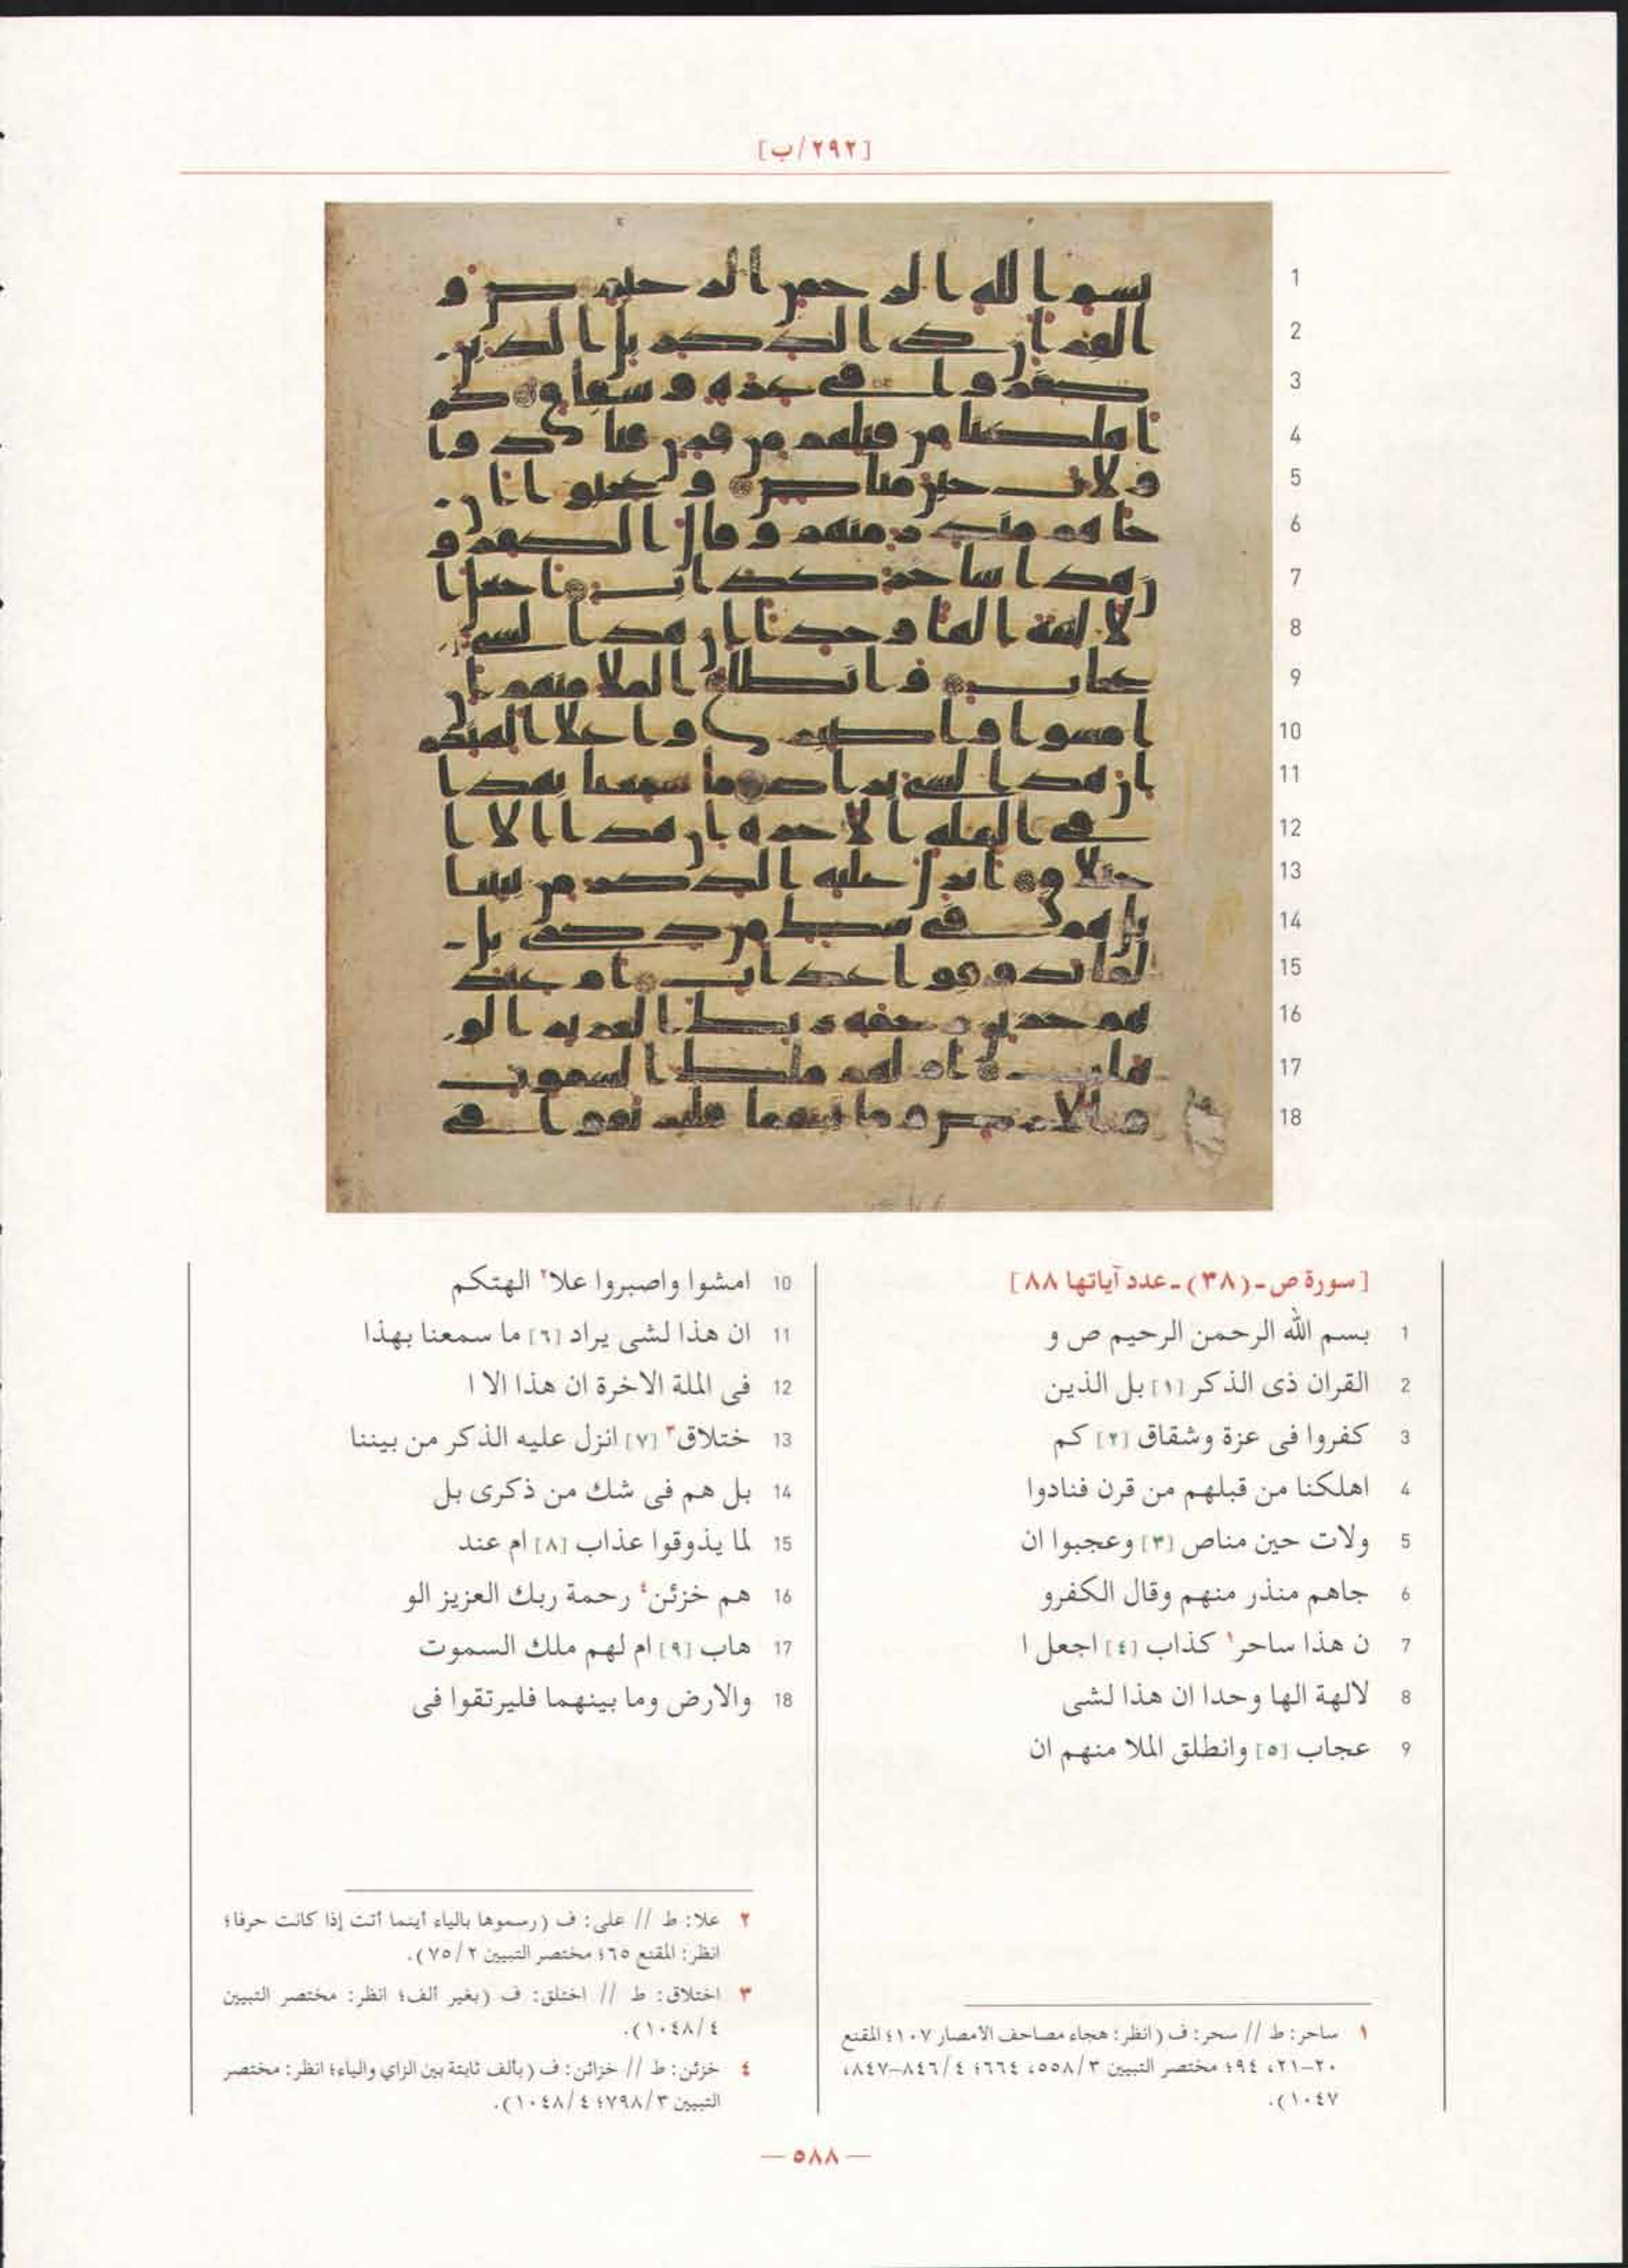 [٢٩٢/ب]
[سورة ص ـ (٣٨) ـ عدد آياتها ٨٨]
1 بسم الله الرحمن الرحيم ص و
2 القران ذى الذكر [١] بل الذين
3 كفروا فى عزة وشقاق [٢] كم
4 اهلكنا من قبلهم من قرن فنادوا
5 ولات حين مناص [٣] وعجبوا ان
6 جاهم منذر منهم وقال الكفرو
7 ن هذا ساحر١ كذاب [٤] اجعل ا
8 لالهة الها وحدا ان هذا لشى
9 عجاب [٥] وانطلق الملا منهم ان
10 امشوا واصبروا علا٢ الهتكم
11 ان هذا لشى يراد [٦] ما سمعنا بهذا
12 فى الملة الاخرة ان هذا الا ا
13 ختلاق٣ [٧] انزل عليه الذكر من بيننا
14 بل هم فى شك من ذكرى بل
15 لما يذوقوا عذاب [٨] ام عند
16 هم خزئن٤ رحمة ربك العزيز الو
17 هاب [٩] ام لهم ملك السموت
18 والارض وما بينهما فليرتقوا فى
١ ساحر: ط // سحر: ف (انظر: هجاء مصاحف الامصار ١٠٧؛ المقنع
٢٠–٢١، ٩٤؛ مختصر التبيين ٣/ ٥٥٨، ٦٦٤؛ ٤/ ٨٤٦–٨٤٧،
١٠٤٧).
٢ علا: ط // على: ف (رسموها بالياء أينما أتت إذا كانت حرفا؛
انظر: المقنع ٦٥؛ مختصر التبيين ٢/ ٧٥).
٣ اختلاق: ط // اختلق: ف (بغير ألف؛ انظر: مختصر التبيين
٤/ ١٠٤٨).
٤ خزئن: ط // خزائن: ف (بألف ثابتة بين الزاي والياء؛ انظر: مختصر
التبيين ٣/ ٧٩٨؛ ٤/ ١٠٤٨).
— ٥٨٨ —